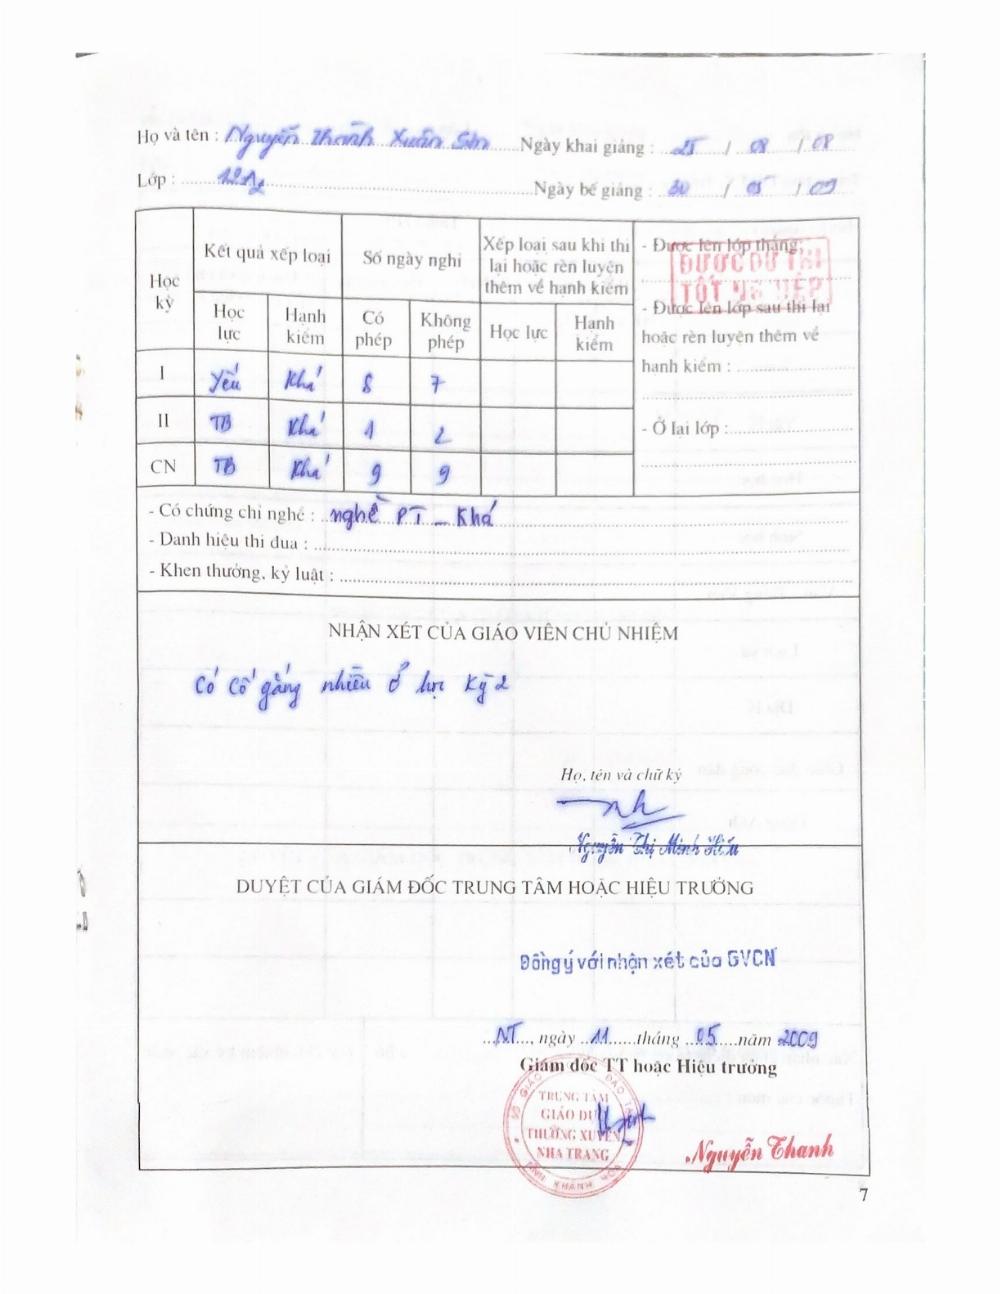 Họ và tên : Nguyễn Thành Xuân Sơn Ngày khai giảng : 25 / 08 / 08
Lớp : 12A2 Ngày bế giảng : 30 / 05 / 09
Học kỳ Kết quả xếp loại Số ngày nghỉ Xếp loại sau khi thi lại hoặc rèn luyện thêm về hạnh kiểm
Học lực Hạnh kiểm Có phép Không phép Học lực Hạnh kiểm
I Yếu Khá 8 7
II TB Khá 1 2
CN TB Khá 9 9
- Được lên lớp thẳng:
ĐƯỢC DỰ THI
TỐT NGHIỆP
- Được lên lớp sau thi lại
hoặc rèn luyện thêm về
hạnh kiểm :
- Ở lại lớp :
- Có chứng chỉ nghề : nghề PT - Khá
- Danh hiệu thi đua :
- Khen thưởng, kỷ luật :
NHẬN XÉT CỦA GIÁO VIÊN CHỦ NHIỆM
Có cố gắng nhiều ở học kỳ 2
Họ, tên và chữ ký
Nguyễn Thị Minh Hiếu
DUYỆT CỦA GIÁM ĐỐC TRUNG TÂM HOẶC HIỆU TRƯỞNG
Đồng ý với nhận xét của GVCN
NT, ngày 11 tháng 05 năm 2009
Giám đốc TT hoặc Hiệu trưởng
TRUNG TÂM
GIÁO DỤC
THƯỜNG XUYÊN
NHA TRANG
TỈNH KHÁNH HÒA
Nguyễn Thanh
7